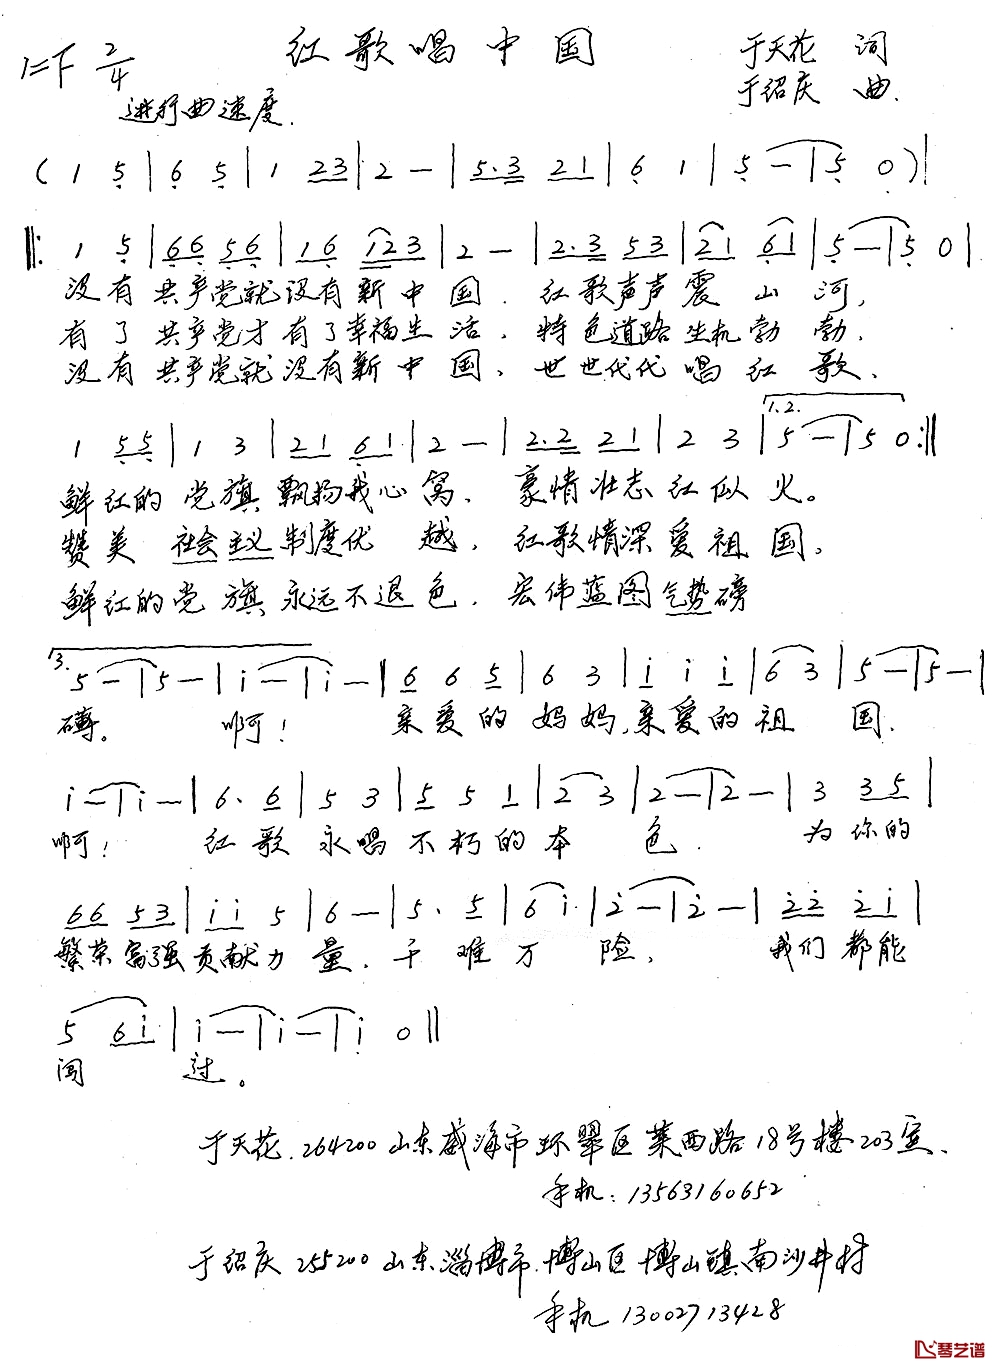 红歌唱中国
1=F 2/4
于天花 词
于绍庆 曲.
进行曲速度.
( 1 5 | 6 5 | 1 23 | 2 — | 5·3 21 | 6 1 | 5 — | 5 0 ) |
‖: 1 5 | 66 56 | 16 123 | 2 — | 2·3 53 | 21 61 | 5 — | 5 0 |
没有 共产党就没有新中国. 红歌声声震山河,
有了共产党才有了幸福生活, 特色道路生机勃勃.
没有共产党就没有新中国、世世代代唱红歌、
1.2.
1 55 | 1 3 | 21 61 | 2 — | 2·2 21 | 2 3 | 5 — | 5 0 :‖
鲜红的党旗飘扬我心窝、豪情壮志红似火。
赞美社会主义制度优越, 红歌情深爱祖国,
鲜红的党旗永远不退色. 宏伟蓝图气势磅
3.
5 — | 5 — | i — | i — ‖ 6 6 5 | 6 3 | i i i | 6 3 | 5 — | 5 — |
礴。 啊! 亲爱的妈妈,亲爱的祖国.
i — | i — | 6· 6 | 5 3 | 5 5 1 | 2 3 | 2 — | 2 — | 3 35 |
啊! 红歌永唱不朽的本色. 为你的
66 53 | i i 5 | 6 — | 5· 5 | 6 i | 2 — | 2 — | 22 2i |
繁荣富强贡献力量. 千难万险, 我们都能
5 6i | i — | i — | i 0 ‖
闯过。
于天花.264200山东威海市环翠区莱西路18号楼203室.
手机:13563160652
于绍庆 255200山东淄博市.博山区博山镇南沙井村
手机 13002713428
琴艺谱